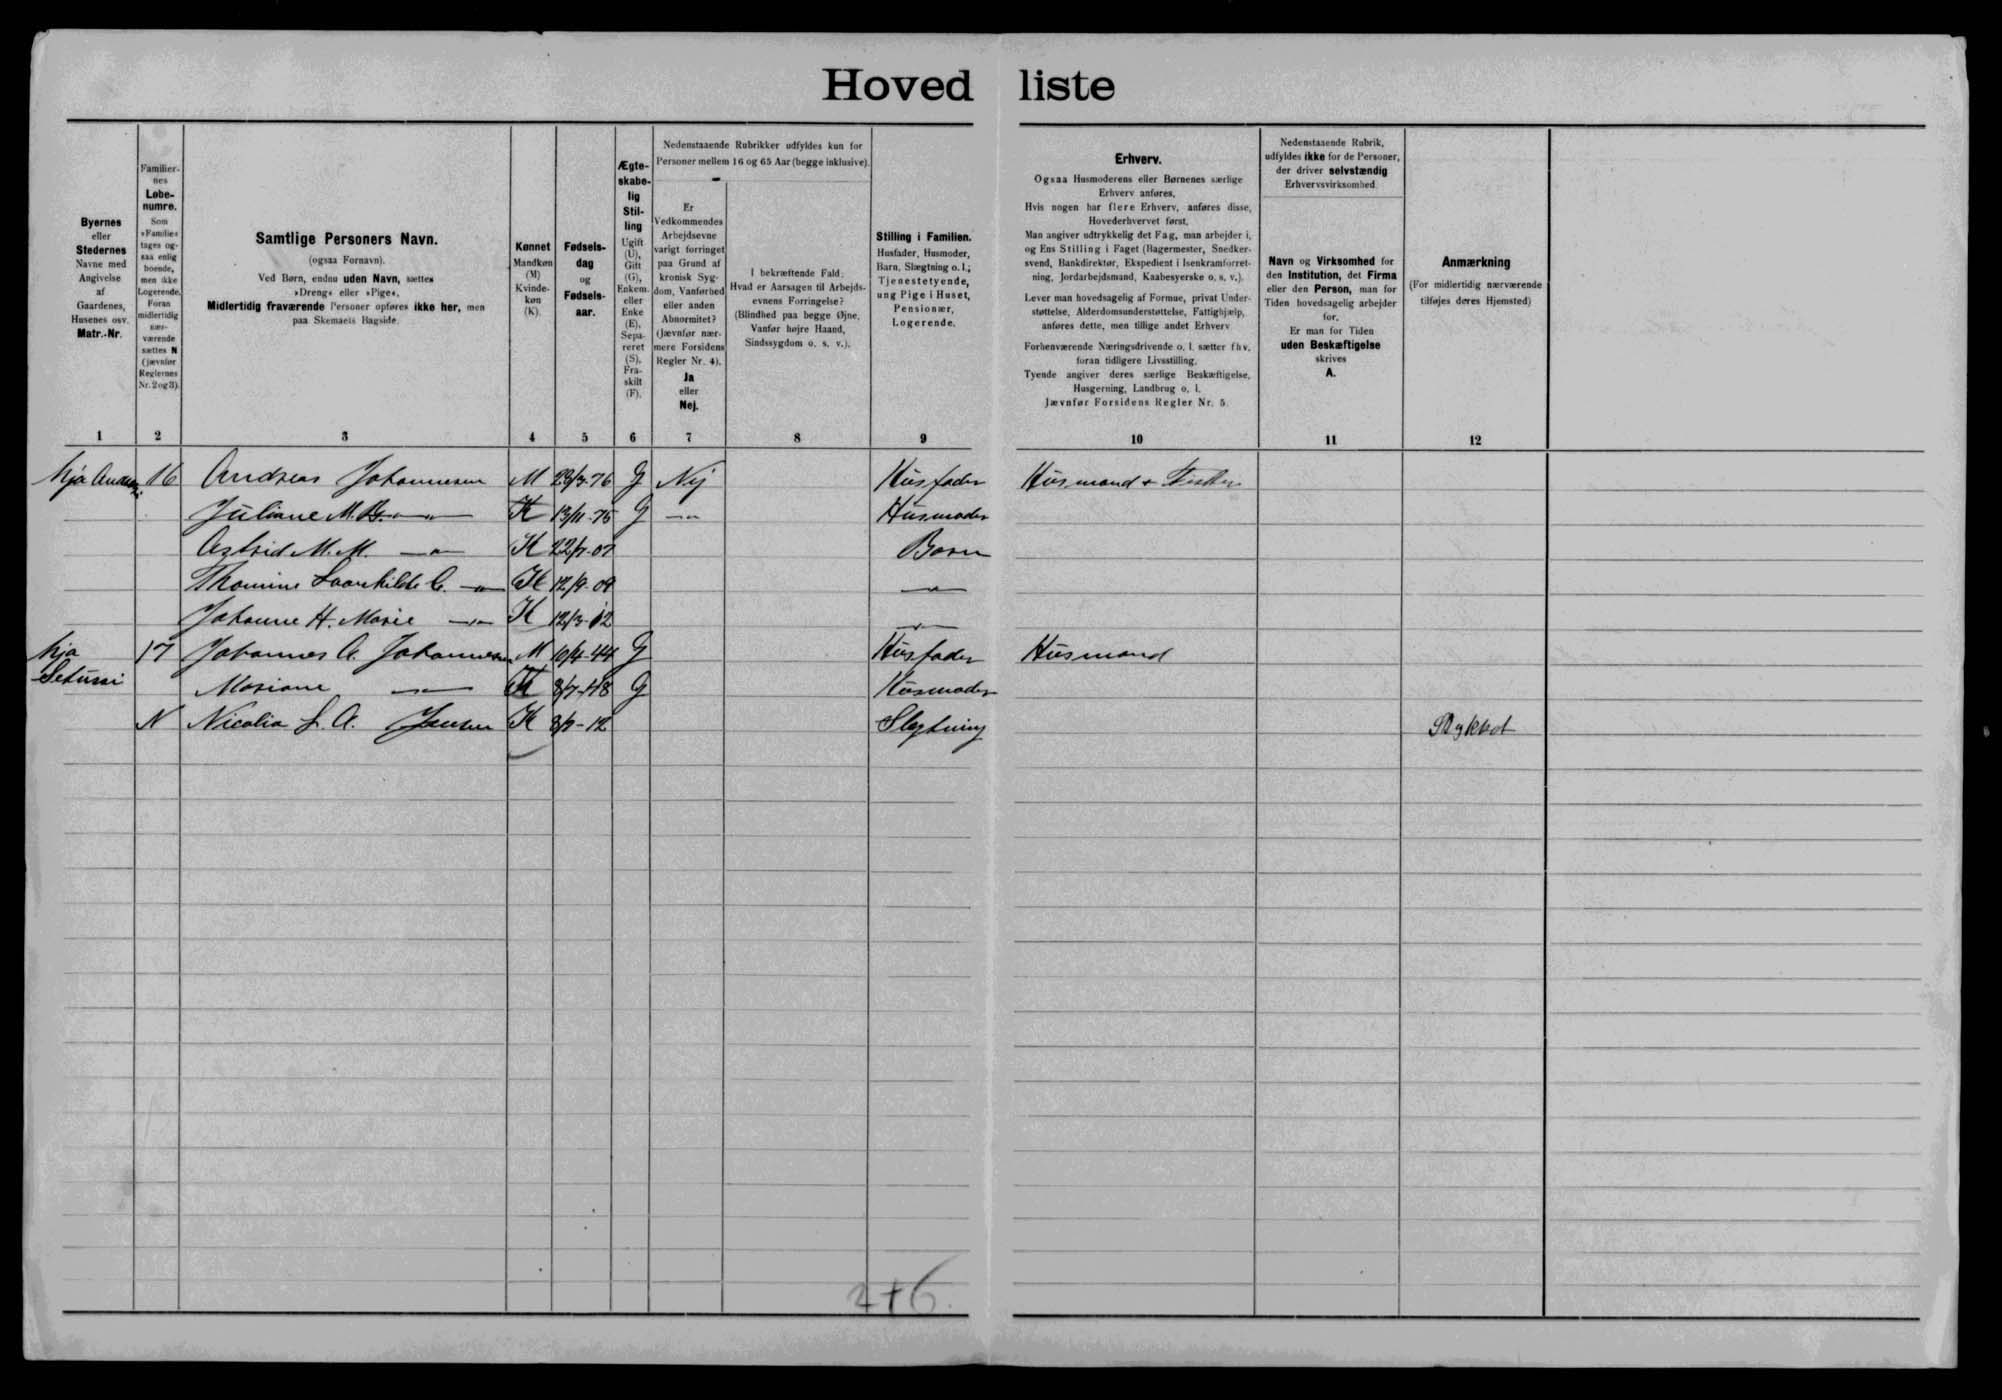 Hoved liste
Byernes
eller
Stedernes
Navne med
Angivelse
af
Gaardenes,
Husenes osv.
Matr.-Nr.
Familier-
nes
Løbe-
numre.
Som
»Familie«
tages og-
saa enlig
boende,
men ikke
Logerende.
Foran
midlertidig
nær-
værende
sættes N
(jævnfør
Reglernes
Nr. 2 og 3).
Samtlige Personers Navn.
(ogsaa Fornavn).
Ved Børn, endnu uden Navn, sættes
»Dreng« eller »Pige«.
Midlertidig fraværende Personer opføres ikke her, men
paa Skemaets Bagside.
Kønnet
Mandkøn
(M)
Kvinde-
køn
(K).
Fødsels-
dag
og
Fødsels-
aar.
Ægte-
skabe-
lig
Stil-
ling
Ugift
(U),
Gift
(G),
Enkem.
eller
Enke
(E),
Sepa-
reret
(S),
Fra-
skilt
(F).
Nedenstaaende Rubrikker udfyldes kun for
Personer mellem 16 og 65 Aar (begge inklusive).
Er
Vedkommendes
Arbejdsevne
varigt forringet
paa Grund af
kronisk Syg-
dom, Vanførhed
eller anden
Abnormitet?
(Jævnfør nær-
mere Forsidens
Regler Nr. 4).
Ja
eller
Nej.
I bekræftende Fald:
Hvad er Aarsagen til Arbejds-
evnens Forringelse?
(Blindhed paa begge Øjne,
Vanfør højre Haand,
Sindssygdom o. s. v.).
Stilling i Familien.
Husfader, Husmoder,
Barn, Slægtning o. l.;
Tjenestetyende,
ung Pige i Huset,
Pensionær,
Logerende.
Erhverv.
Ogsaa Husmoderens eller Børnenes særlige
Erhverv anføres.
Hvis nogen har flere Erhverv, anføres disse,
Hovederhvervet først.
Man angiver udtrykkelig det Fag, man arbejder i,
og Ens Stilling i Faget (Bagermester, Snedker-
svend, Bankdirektør, Ekspedient i Isenkramforret-
ning, Jordarbejdsmand, Kaabesyerske o. s. v.).
Lever man hovedsagelig af Formue, privat Under-
støttelse, Alderdomsunderstøttelse, Fattighjælp,
anføres dette, men tillige andet Erhverv
Forhenværende Næringsdrivende o. l. sætter fhv.
foran tidligere Livsstilling.
Tyende angiver deres særlige Beskæftigelse,
Husgerning, Landbrug o. l.
Jævnfør Forsidens Regler Nr. 5.
Nedenstaaende Rubrik,
udfyldes ikke for de Personer,
der driver selvstændig
Erhvervsvirksomhed
Navn og Virksomhed for
den Institution, det Firma
eller den Person, man for
Tiden hovedsagelig arbejder
for.
Er man for Tiden
uden Beskæftigelse
skrives
A.
Anmærkning
(For midlertidig nærværende
tilføjes deres Hjemsted)
1 2 3 4 5 6 7 8 9 10 11 12
16 Andreas Johannesen M 23/3-76 G Nej Husfader Husmand + Fisker
Juliane M. B. —"— K 13/11-75 G —"— Husmoder
Astrid M. M. —"— K 22/7-07 Barn
Thomine C. —"— K 12/9-09 —"—
Johanne H. Marie —"— K 12/3-12 —"—
hja 17 Johannes A. Johannesen M 10/4-44 G Husfader Husmand
Mariane —"— K 8/7-48 G Husmoder
N Nicolia A. Jensen K 8/7-12 Slegtning
2+6